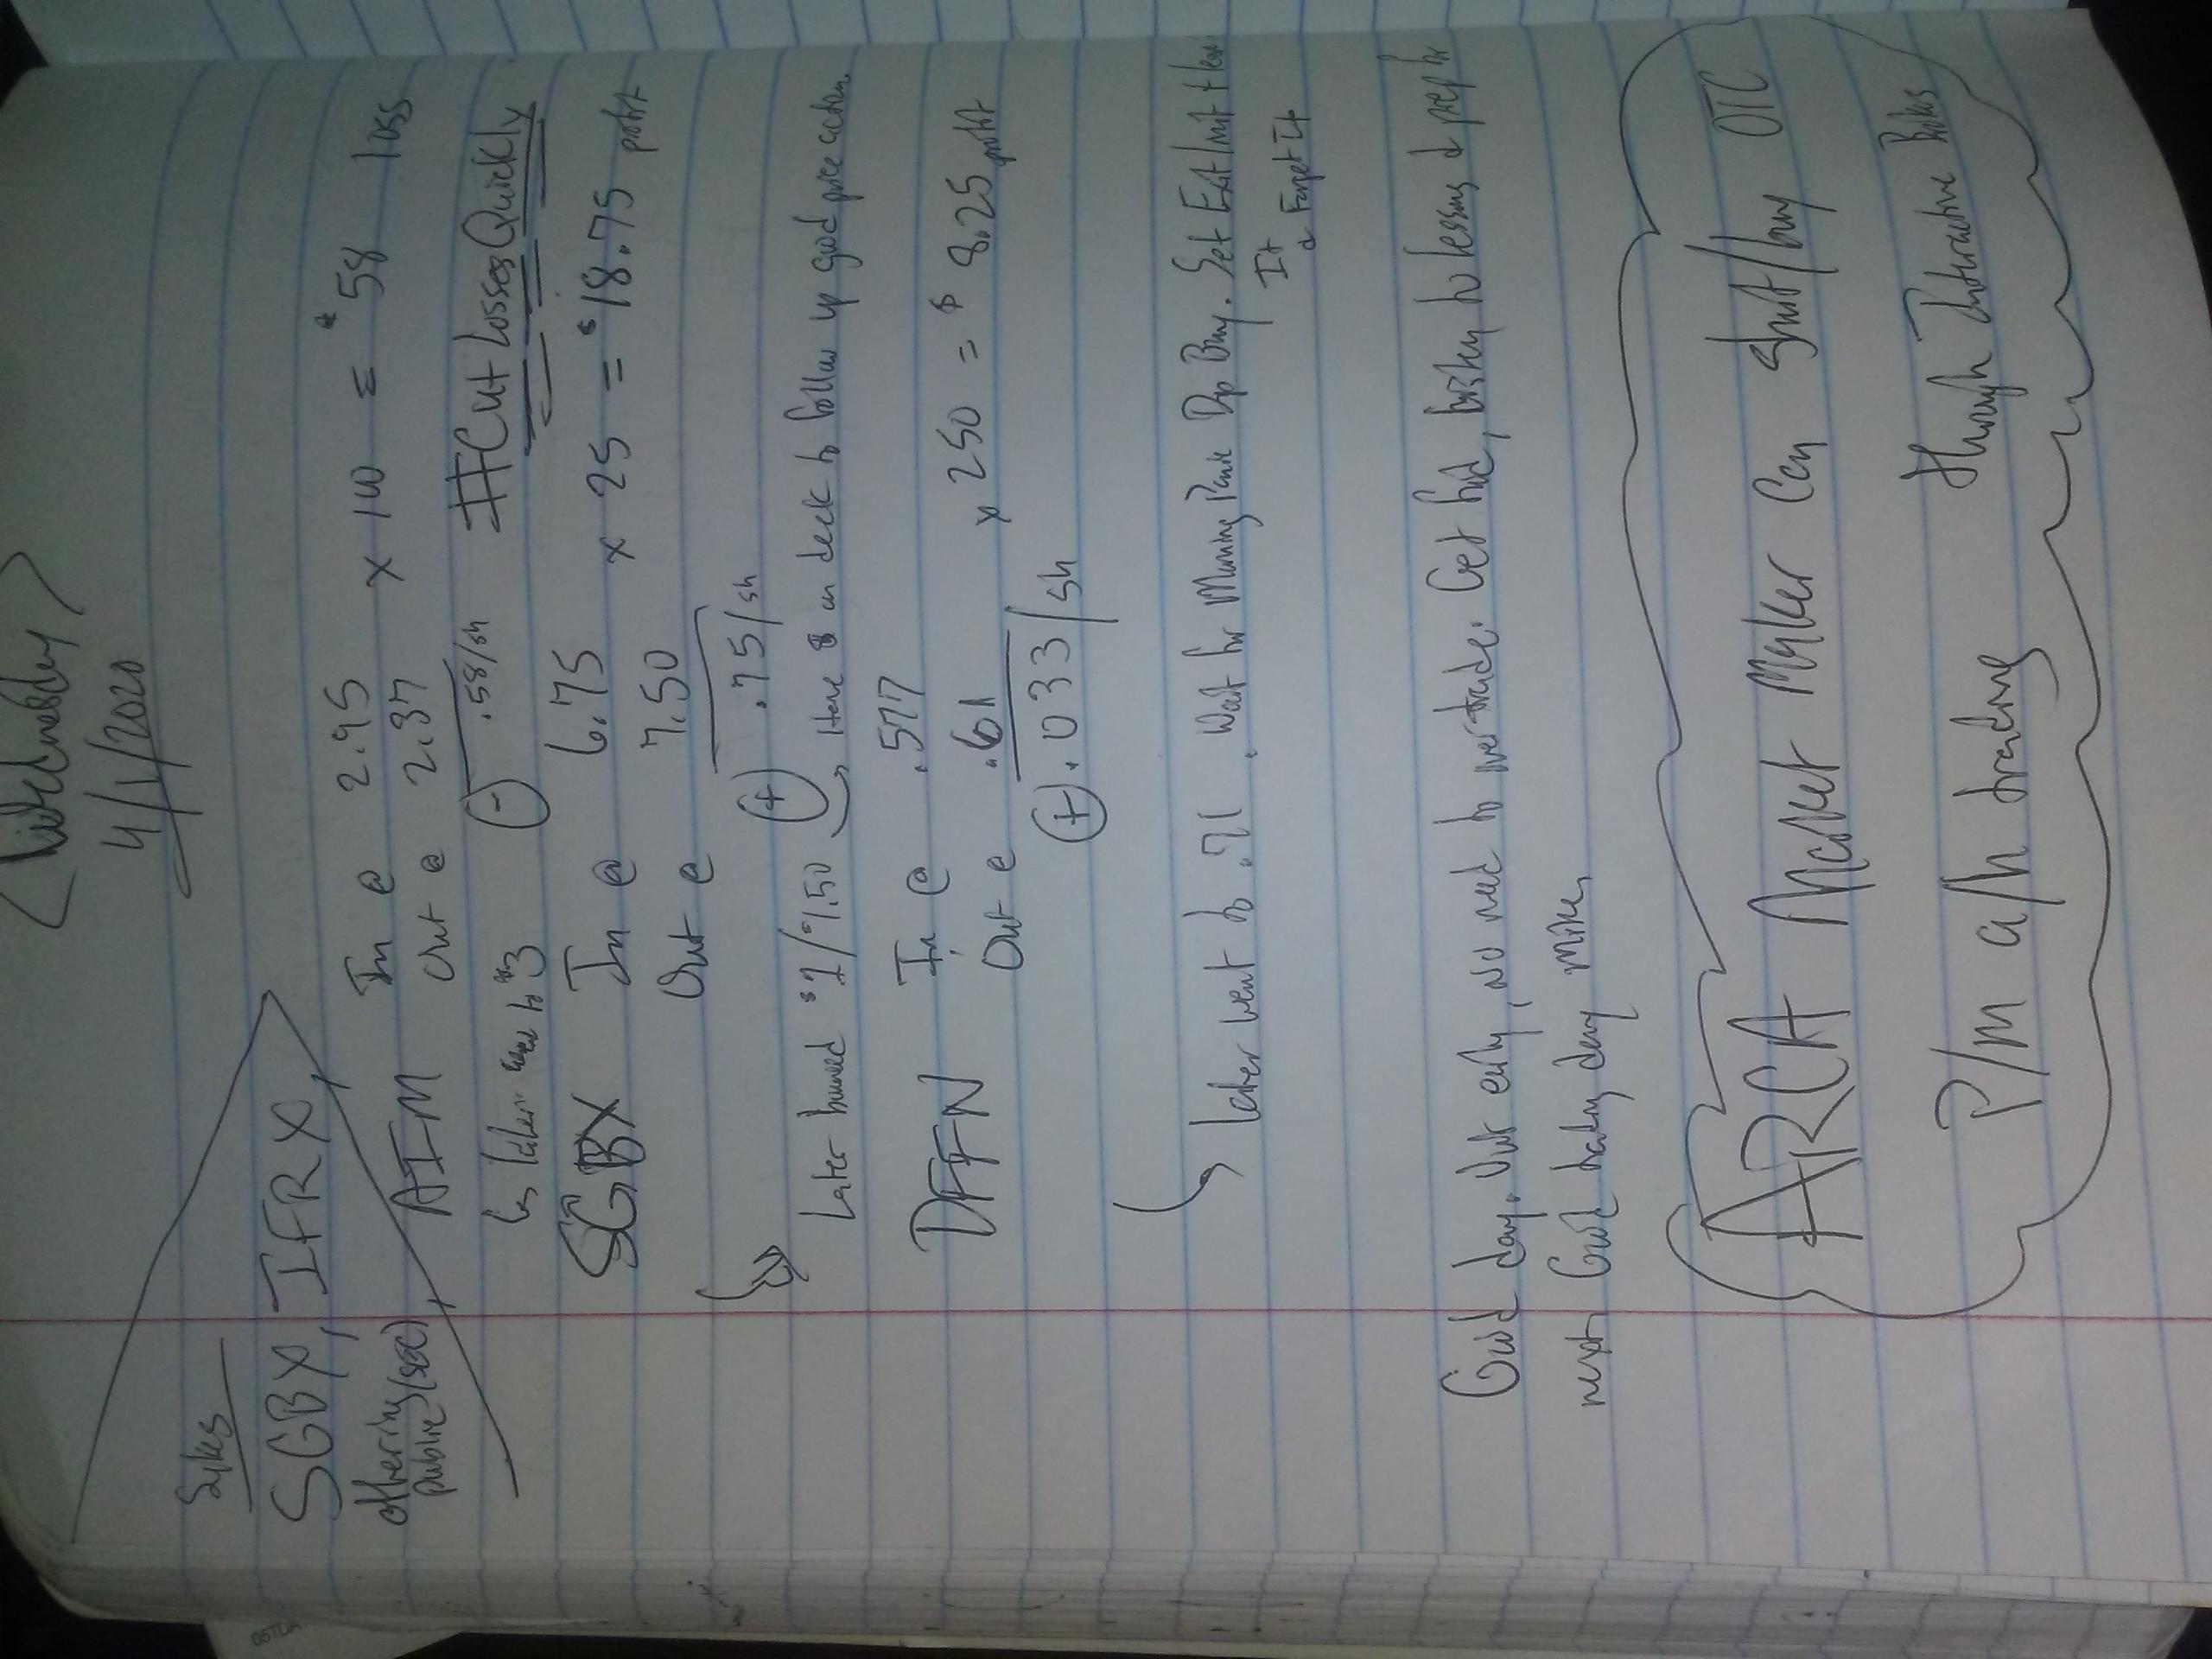 <Wednesday>
4/1/2020
Sykes
SGBX, IFRX
offering (sec)
public
AIM In @ 2.95
Out @ 2.37 x 100 = $58 loss
(-) .58/sh #CutLossesQuickly
↳ later went to $3
SGBX In @ 6.75
Out @ 7.50 x 25 = $18.75 profit
(+) .75/sh
Later bounced $1/$1.50 Have on deck to follow up good price action.
DFFN In @ .577
Out @ .61 x 250 = $8.25 profit
(+) .033/sh
later went to .71. Wait for Morning Panic Dip Buy. Set Exit limit + leave
It
& Forget It
Good day. Out early, no need to overtrade. Get food, listen to lessons & prep for
next Good trading day Mike.
ARCA Market Maker Can Short/buy OTC
P/m a/h trading through Interactive Brokers